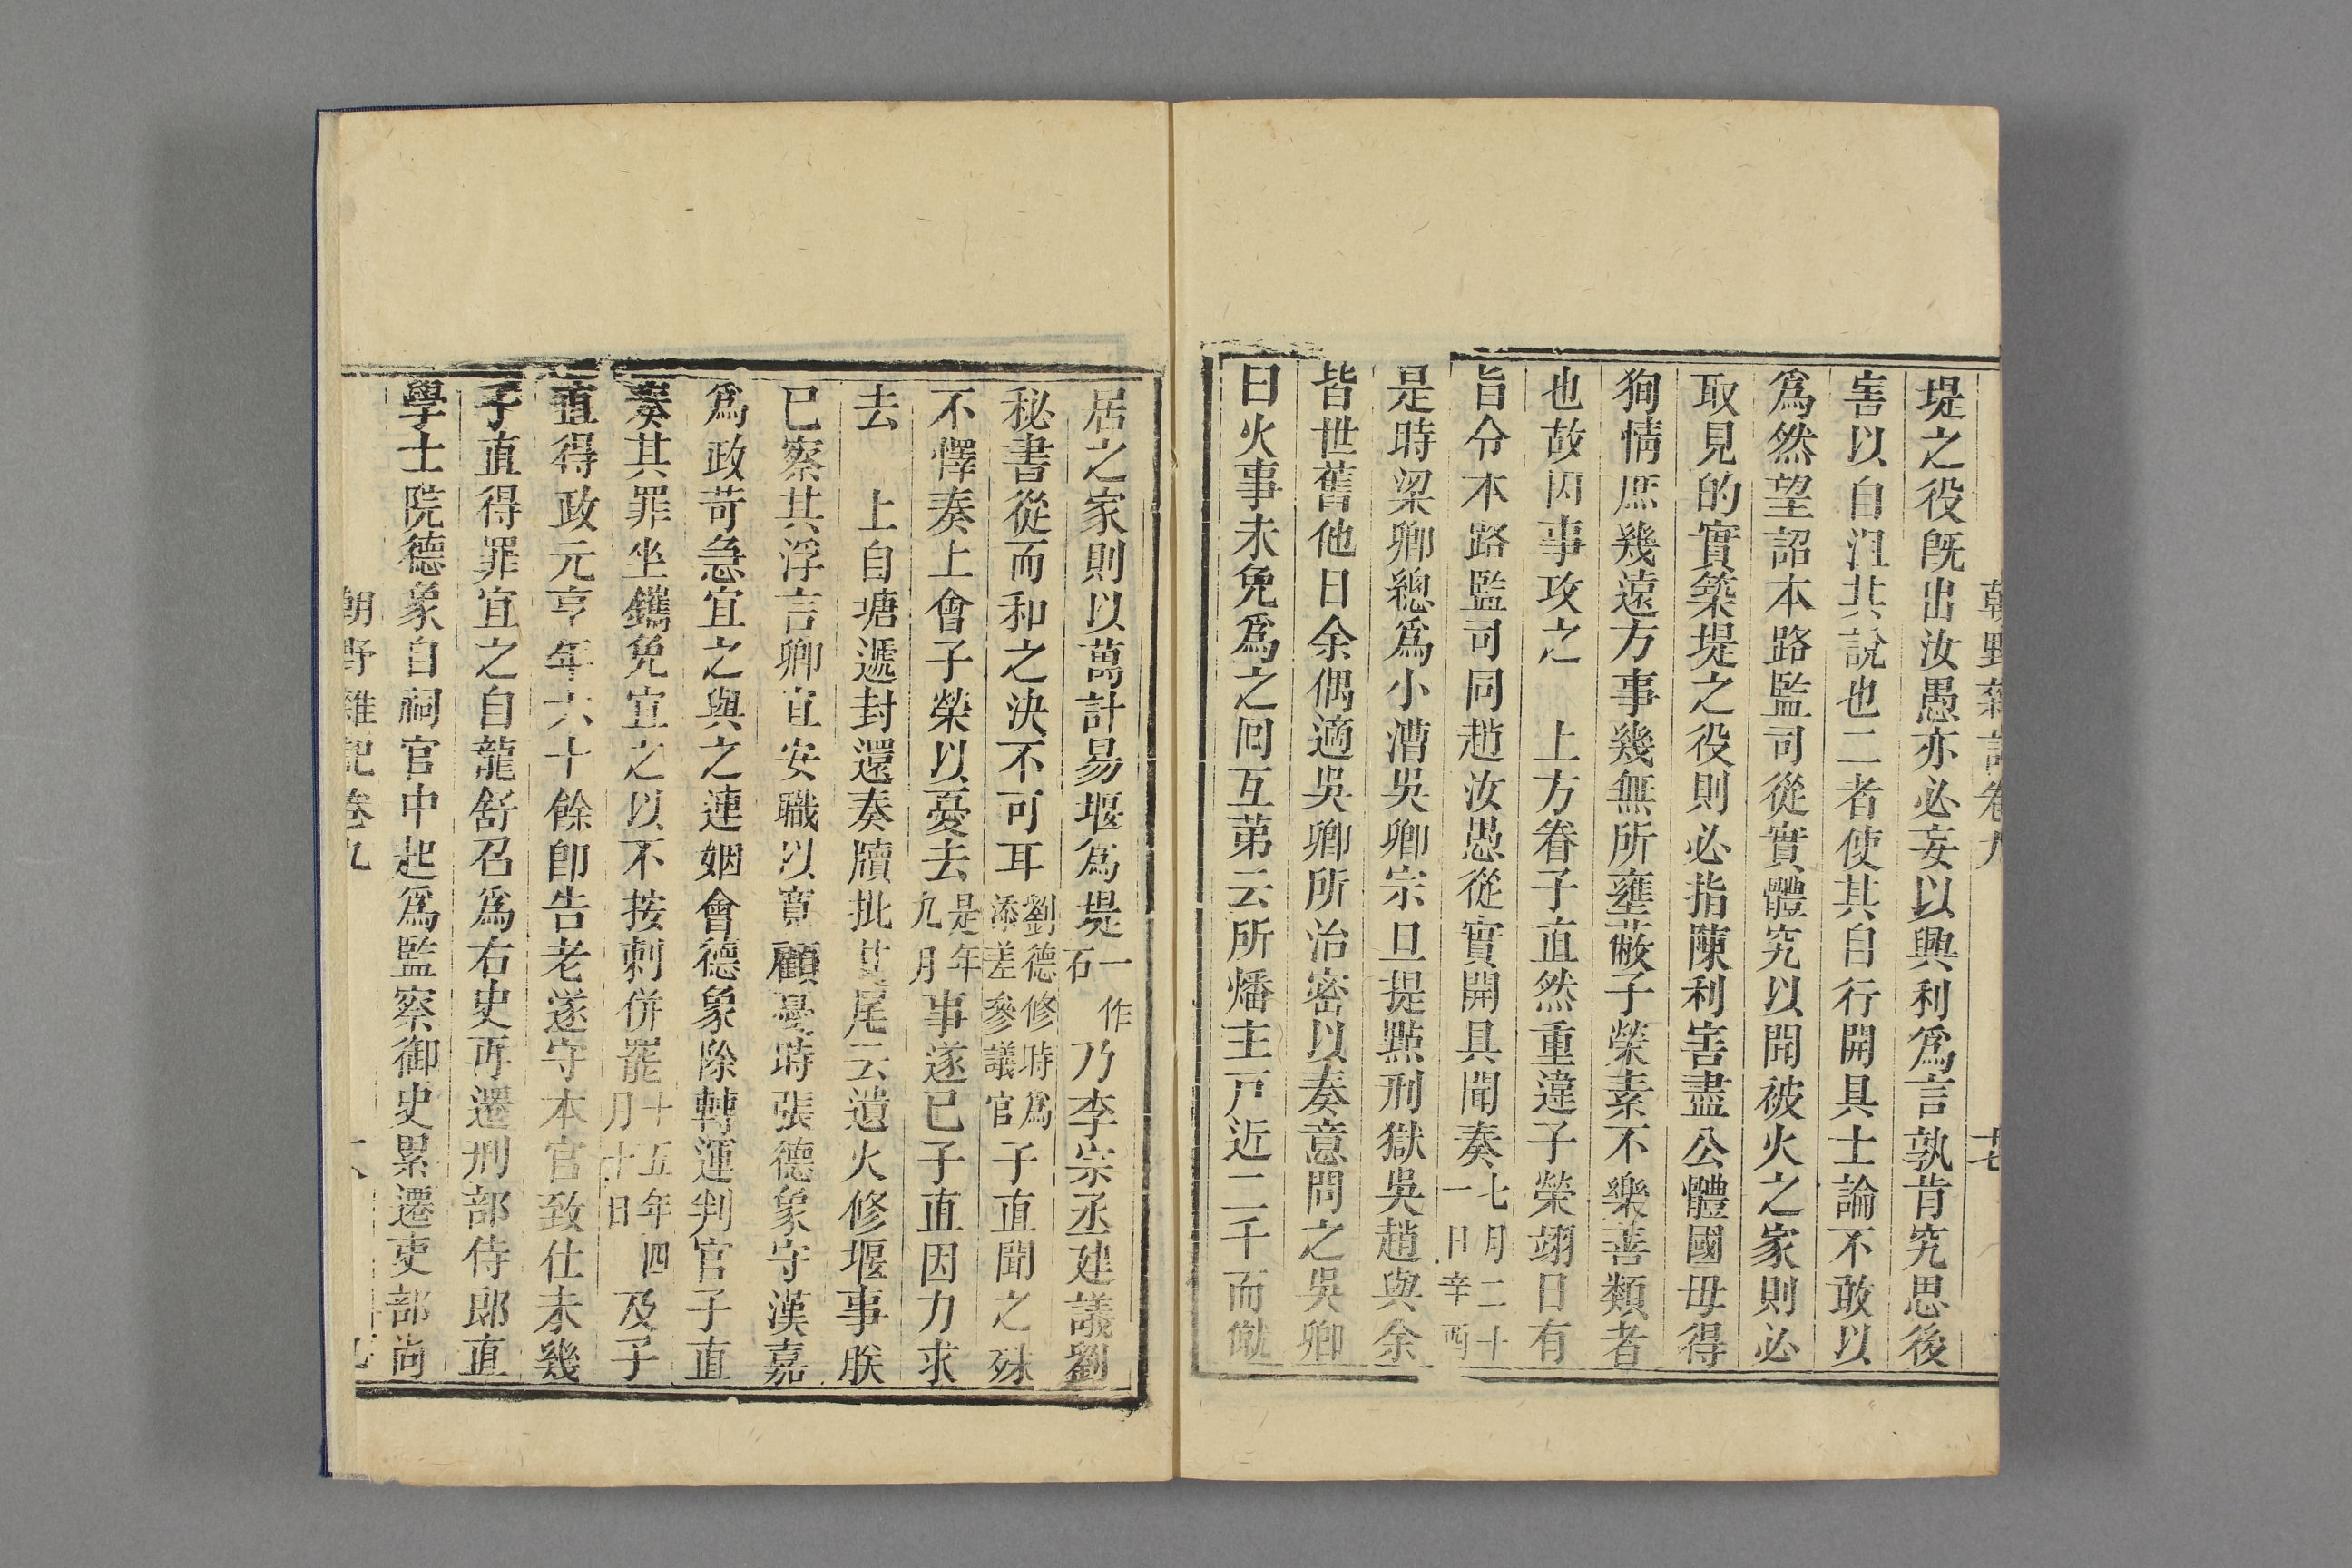 朝野雜記卷九
十七
堤之役旣出汝愚亦必妄以興利爲言孰肯究思後
害以自沮其說也二者使其自行開具士論不敢以
爲然望詔本路監司從實體究以開被火之家則必
取見的實築堤之役則必指陳利害盡公體國毋得
狥情庶幾遠方事幾無所壅蔽子榮素不樂善類者
也故因事攻之　上方眷子直然重違子榮翊日有
旨令本路監司同趙汝愚從實開具聞奏七月二十一日辛酉
是時梁卿總爲小漕吳卿宗旦提點刑獄吳趙與余
皆世舊他日余偶適吳卿所治密以奏意問之吳卿
曰火事未免爲之回互第云所燔主戸近二千而僦
居之家則以萬計易堰爲堤一作石乃李宗丞建議劉
秘書從而和之決不可耳劉德修時爲添差參議官子直聞之殊
不懌奏上會子榮以憂去是年九月事遂已子直因力求
去　上自塘遞封還奏牘批其尾云遺火修堰事朕
已察其浮言卿宜安職以寛顧憂時張德象守漢嘉
爲政苛急宜之與之連姻會德象除轉運判官子直
奏其罪坐鐫免宜之以不按刺併罷十五年四月十日及子
直得政元亨年六十餘卽告老遂守本官致仕未幾
子直得罪宜之自龍舒召爲右史再遷刑部侍郎直
學士院德象自祠官中起爲監察御史累遷吏部尚
朝野雜記卷九